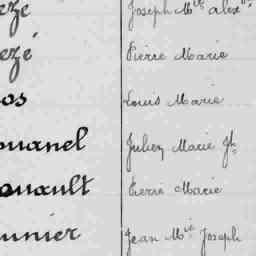 eze Joseph Mie alexdre
ezé Pierre Marie
os Louis Marie
ouanel Julien Marie Jh
ouault Pierre Marie
unier Jean Mie Joseph